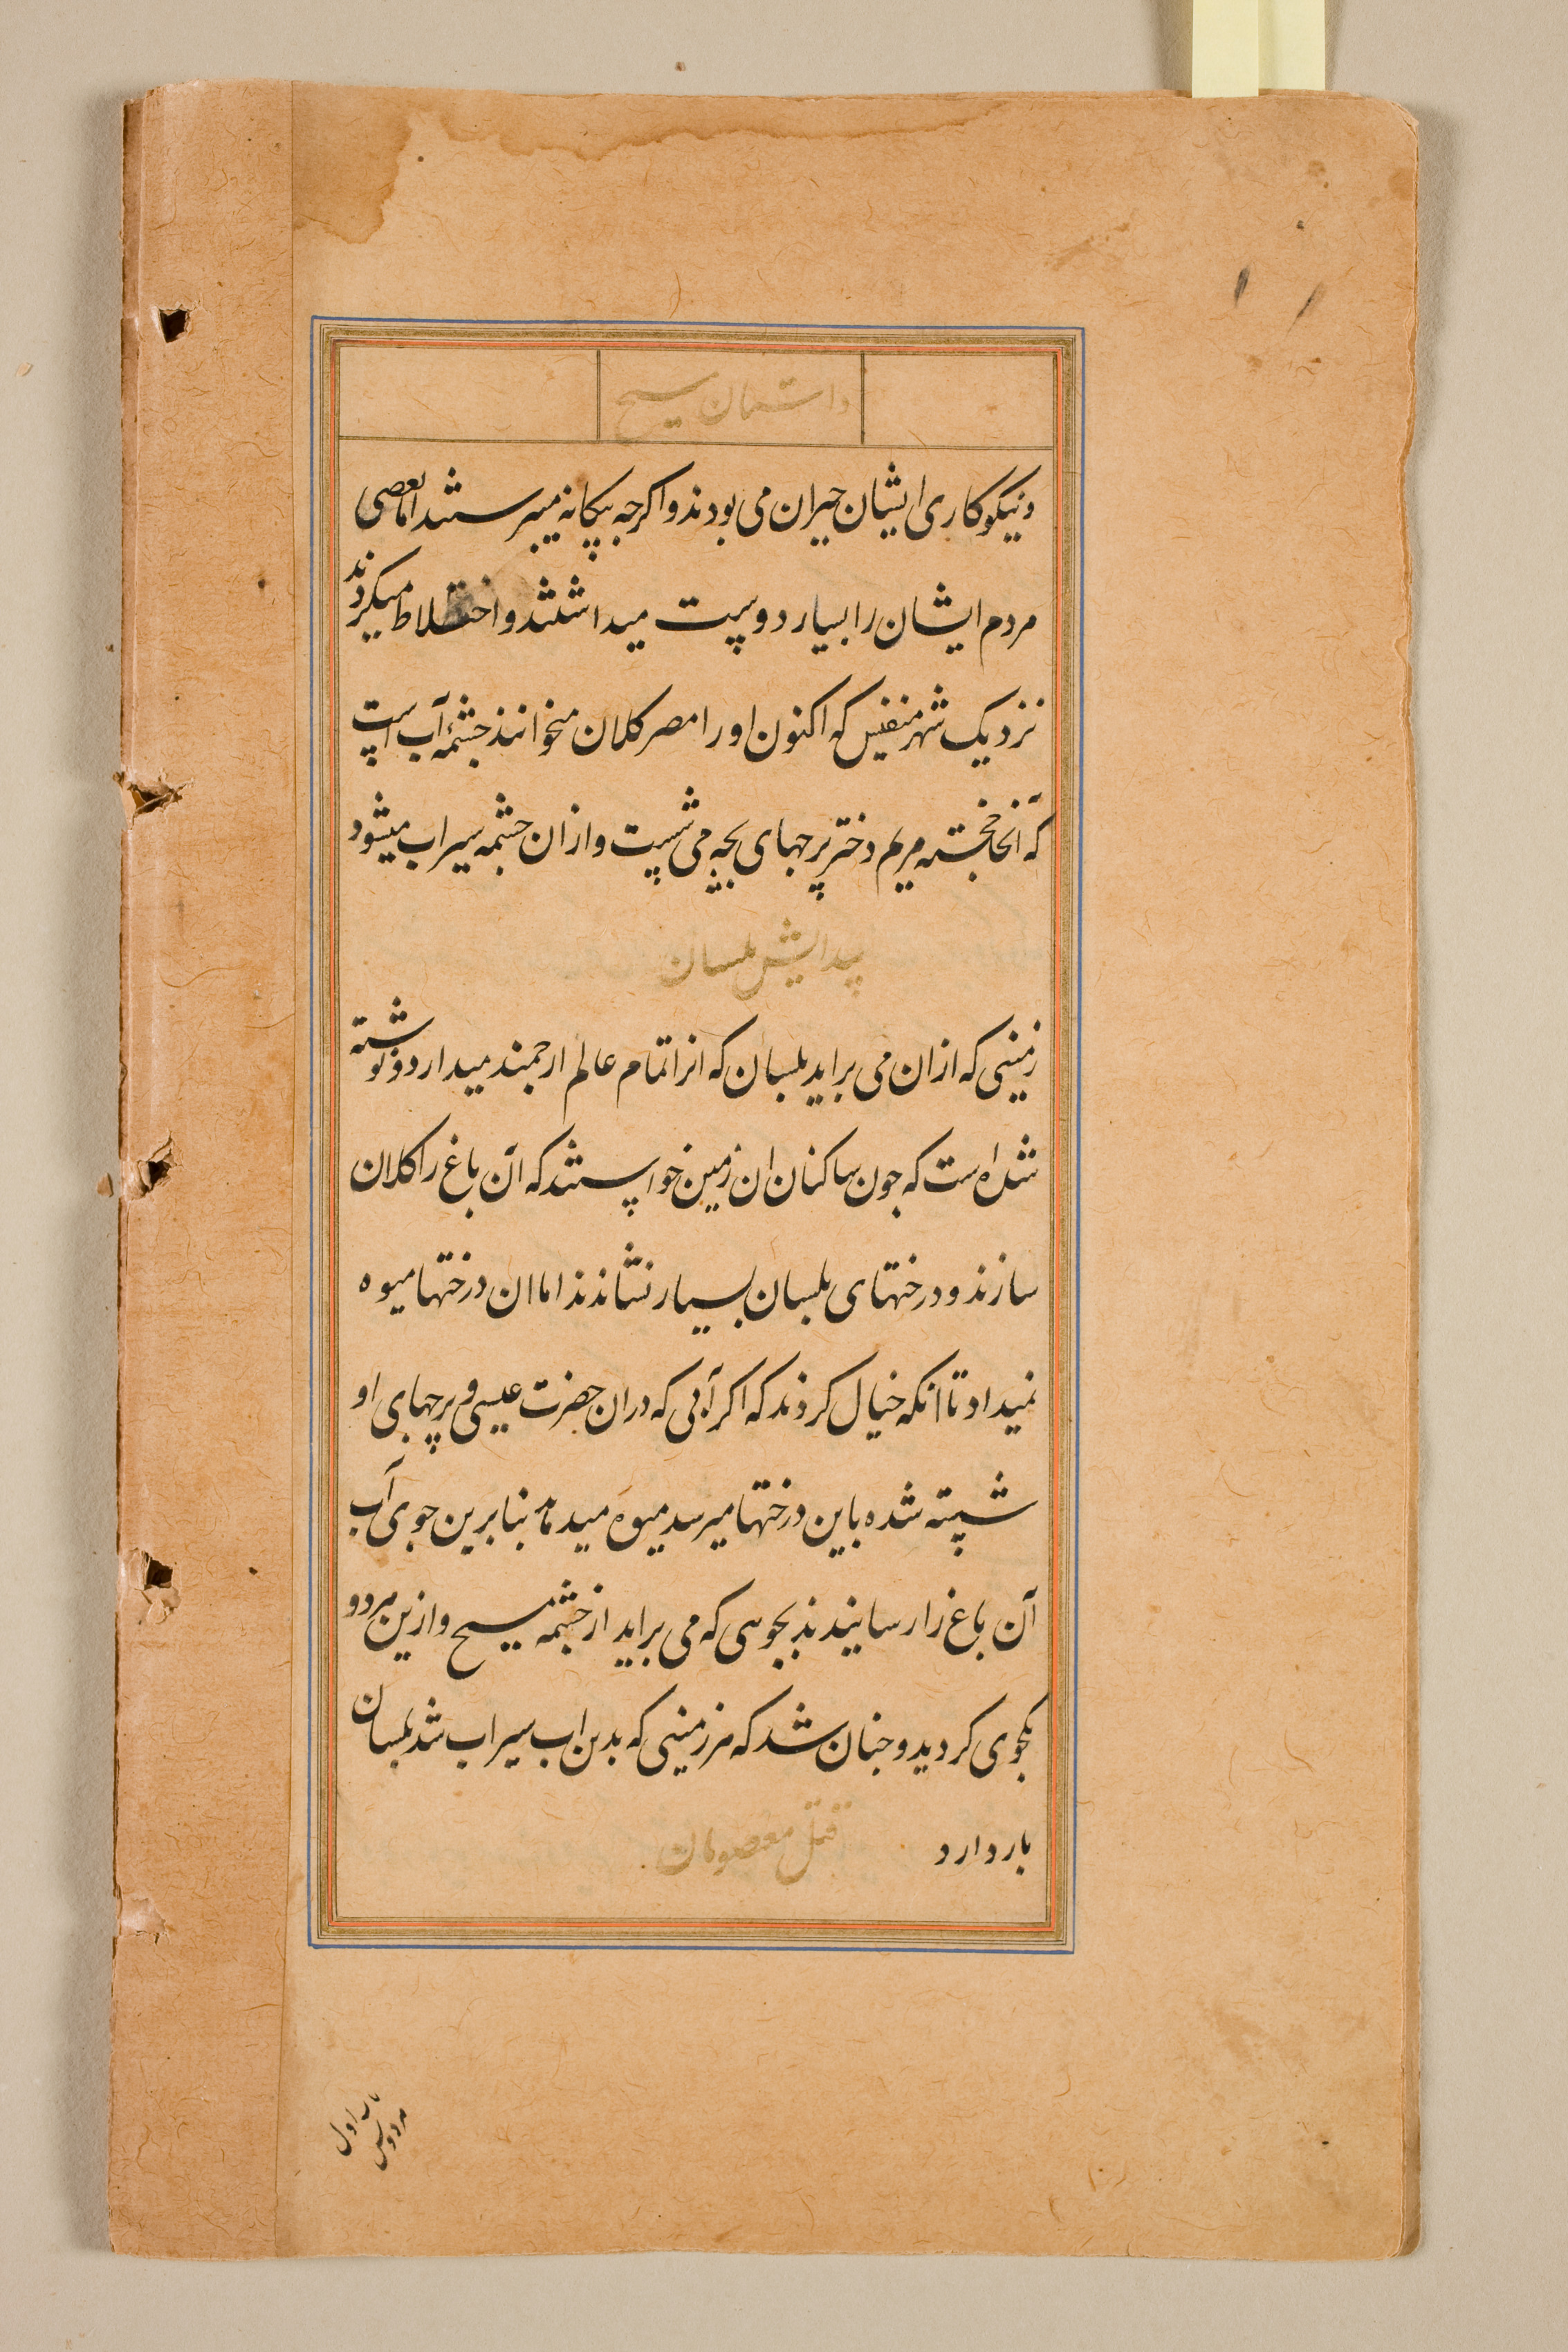 داستان مسیح
ونیکوکاری ایشان حیران می بودند و اکرچه بیکانه میپرستند اما بعضی
مردم ایشان را بسیار دوست میداشتند و اختلاط میکردند
نزدیک شهر منفیس که اکنون او را مصر کلان میخوانند چشمهٔ آب است
که آنجا خجسته مریم دختر پرچهای بچه می شست و ازان چشمه سیراب میشود
پیدایش بلسان
زمینی که ازان می براید بلسان که انرا تمام عالم ارجمند میدارد و نوشته
شده است که چون ساکنان ان زمین خواستند که آن باغ را کلان
سازند و درختهای بلسان بسیار نشاندند اما ان درختها میوه
نمیداد تا آنکه خیال کردند که اکر آبی که دران حضرت عیسی و پرچهای او
شسته شده باین درختها میرسد میوه میدهد بنابرین جوی آب
آن باغ را رسانیدند بجوی که می براید از چشمه مسیح وازین هر دو
یکجوی کردید و چنان شد که هر زمینی که بدین اب سیراب شد بلسان
بار دارد قتل معصومان
اول